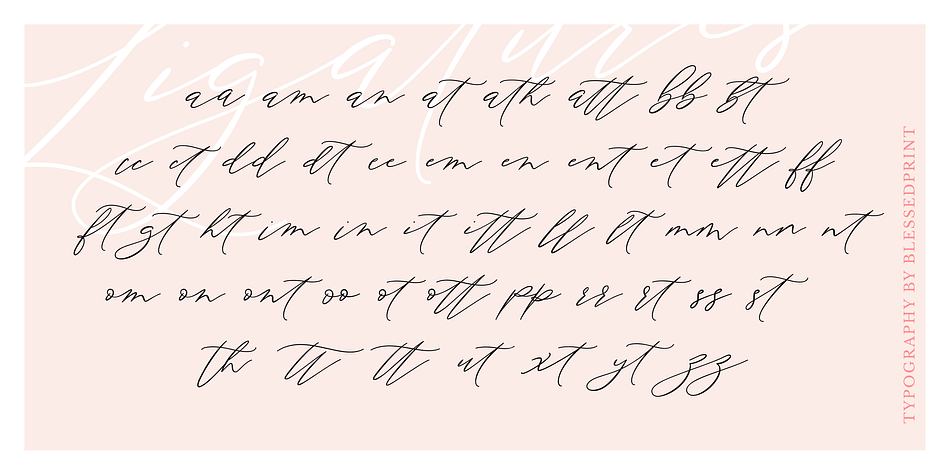 Ligatures
aa am an at ath att bb bt
cc ct dd dt ee em en ent et ett ff
ft gt ht im in it itt ll lt mm nn nt
om on ont oo ot ott pp rr rt ss st
th tt tt ut xt yt zz
TYPOGRAPHY BY BLESSEDPRINT